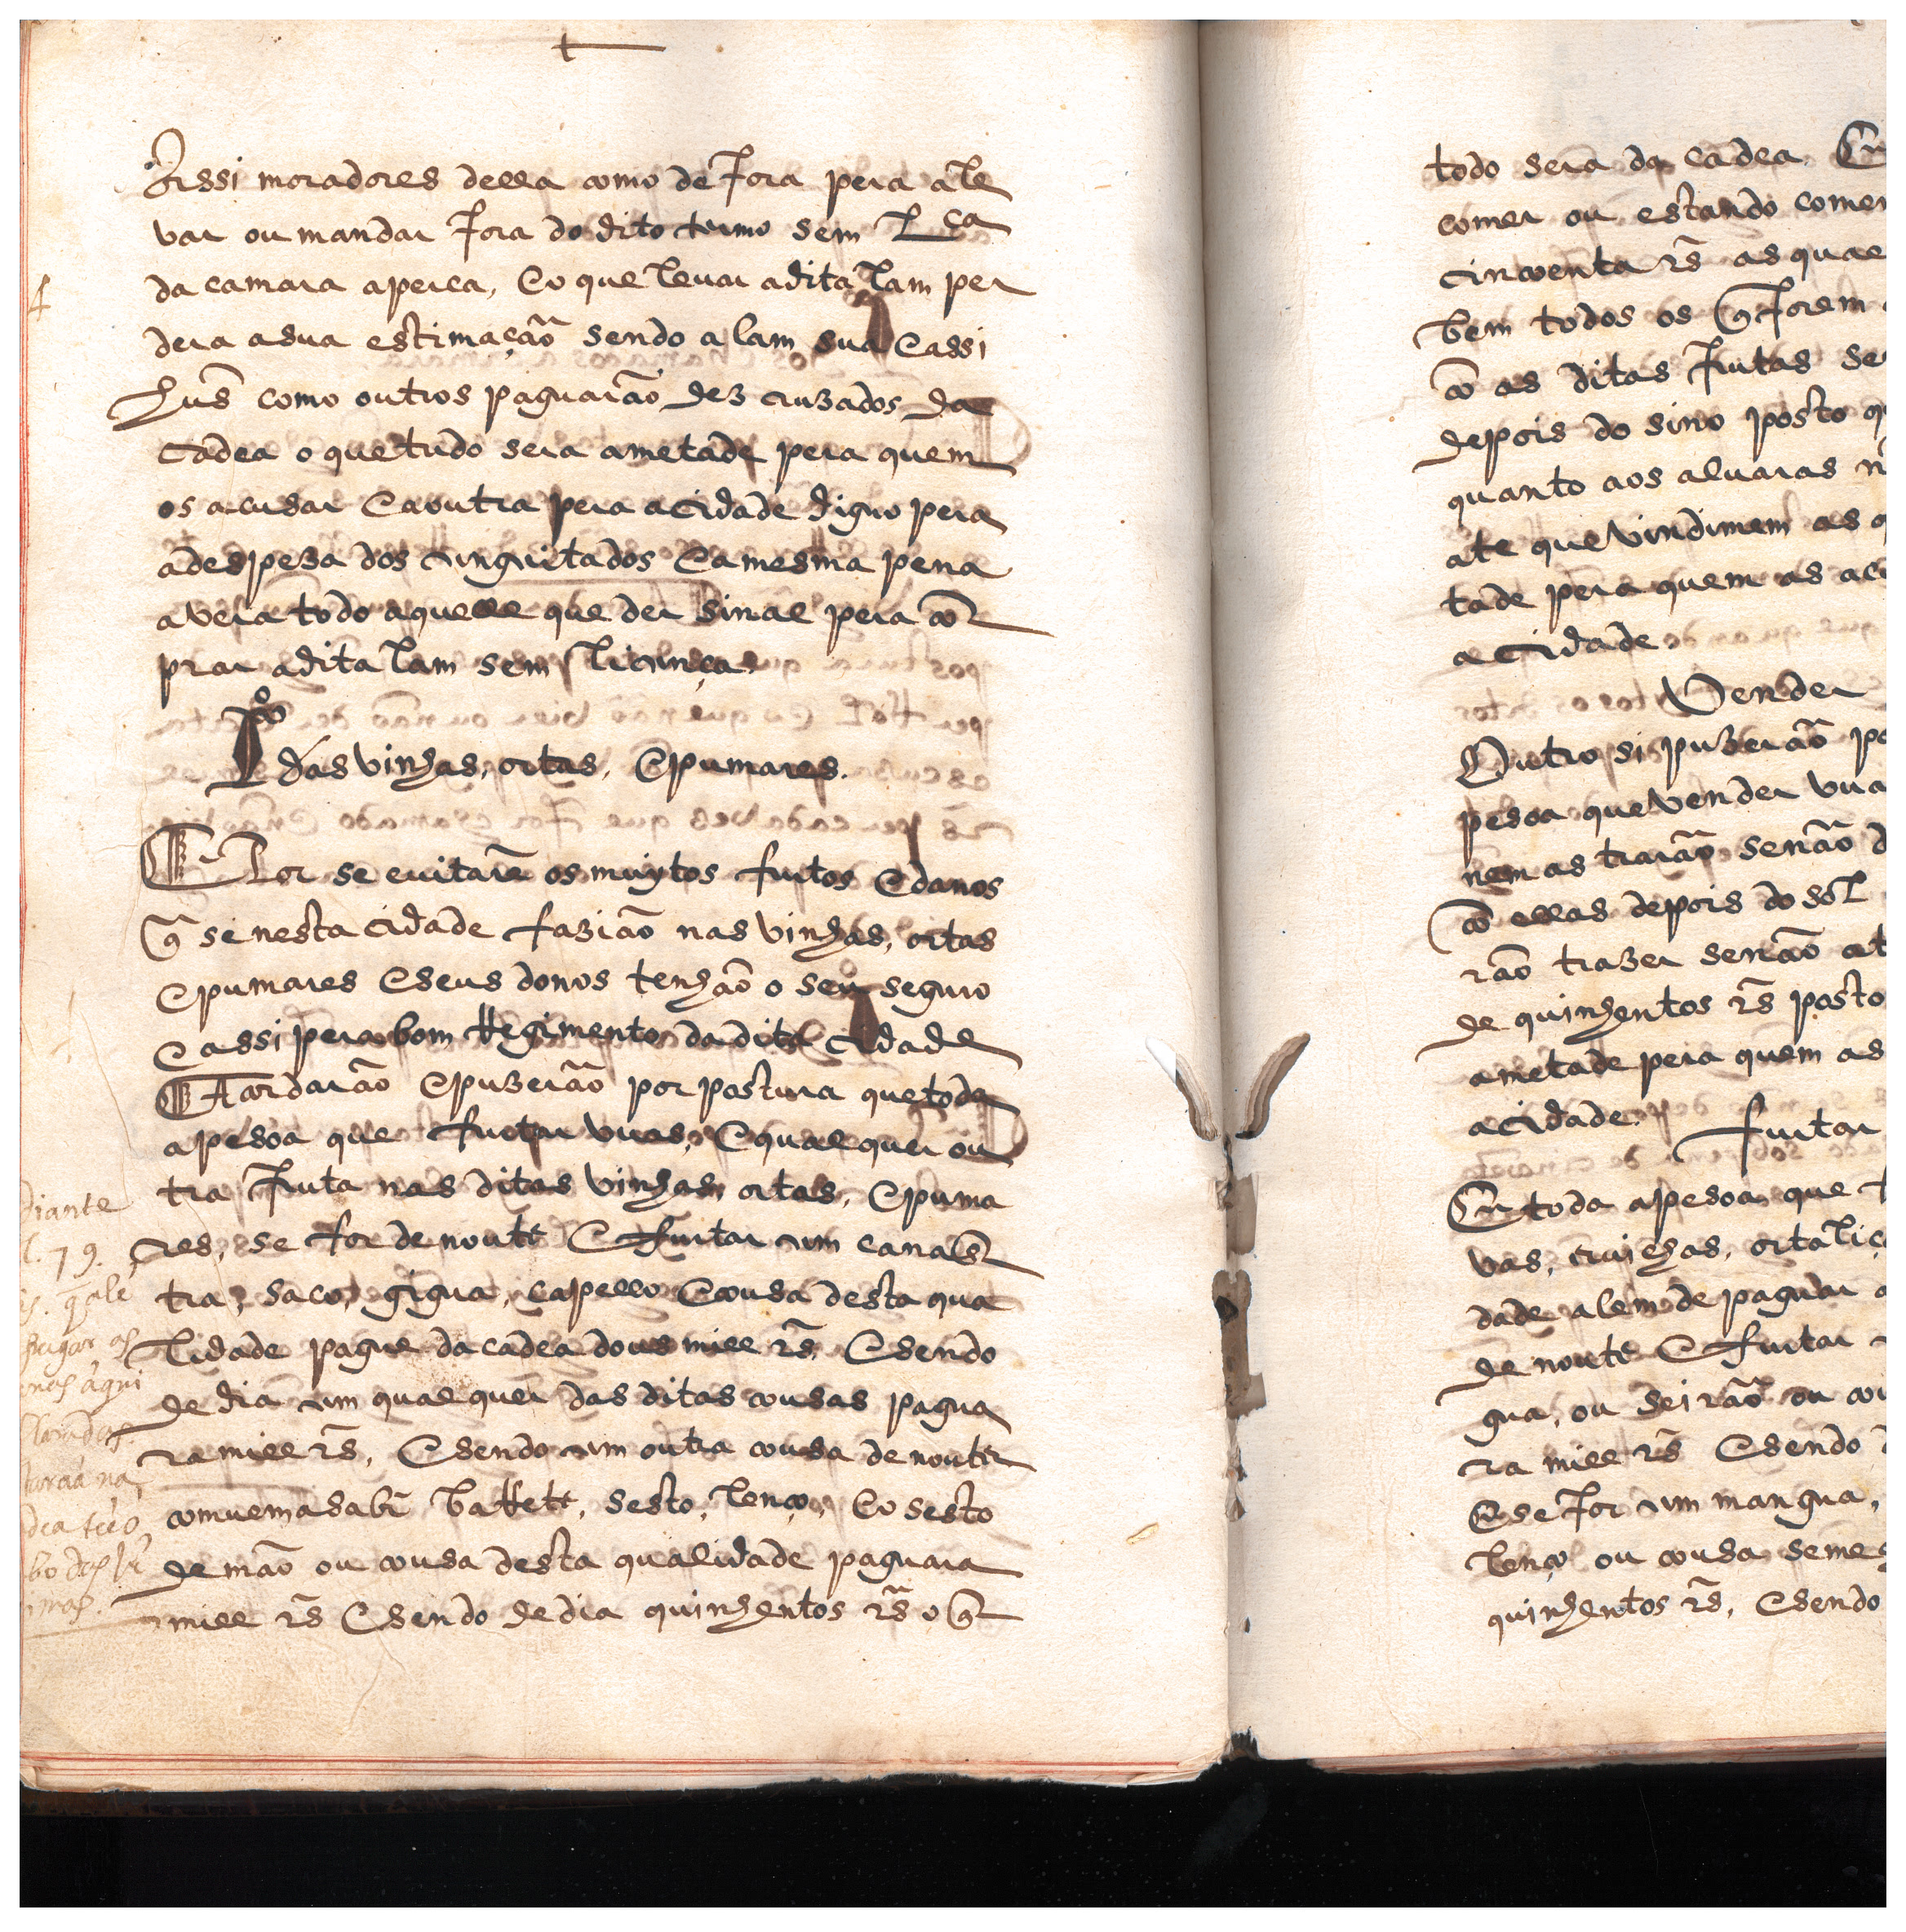 Assi moradores della como de fora pera a le
var ou mandar fora do dito termo sem Lça
da camara a perca, E o que levar a dita lam per
dera a sua estimação sendo a lam sua E assi
hũs como outros paguarão dez cruzados da
cadea o que tudo sera ametade pera quem
os acusar E a outra pera a cidade diguo pera
a despeza dos engeitados E a mesma pena
avera todo aquelle que der sinal pera com
prar a dita lam sem licença.
Tº das vinhas, ortas, E pumares.
E Por se evitarẽ os muytos furtos E danos
q̃ se nesta cidade fazião nas vinhas, ortas
E pumares E seus donos tenhão o seu seguro
E assi pera bom Regimento da dita cidade
Acordarão E puzerão por postura que toda
a pesoa que furtar uvas, E qual quer ou
tra fruta nas ditas vinhas, ortas, E puma
res, se for de noute E furtar em canas
tra, saco, gigua, capello E cousa desta qua
lidade pague da cadea dous mill rs̃, E sendo
de dia em qual quer das ditas cousas pagua
ra mill rs̃, E sendo em outra cousa de noute
comvem a sabr̃ barrete, sesto, lenço, E o sesto
de mão ou cousa desta qualidade paguara
mill rs̃ E sendo de dia quinhentos rs̃ o q̃
diante
l. 79.
aqui
todo sera da cadea. E
comer ou estando comen
cincoenta rs̃ as quae
bem todos os q̃ forem
cõ as ditas frutas se
depois do sino posto q
quanto aos alvaras
ate que vindimem as
tade pera quem as ac
a cidade.
Vender
Outro si puzerão po
pesoa que vender uva
nem as trarão senão d
cõ ellas depois do sol
rão trazer senão at
de quinhentos rs̃ posto
ametade pera quem as
a cidade.
furtar
E toda a pesoa que
vas, ervilhas, ortaliça
dade alem de paguar
de noute E furtar
gua, ou seirão ou cou
ra mill rs̃ E sendo d
E se for em mangua,
lenço ou cousa semelh
quinhentos rs̃, E sendo